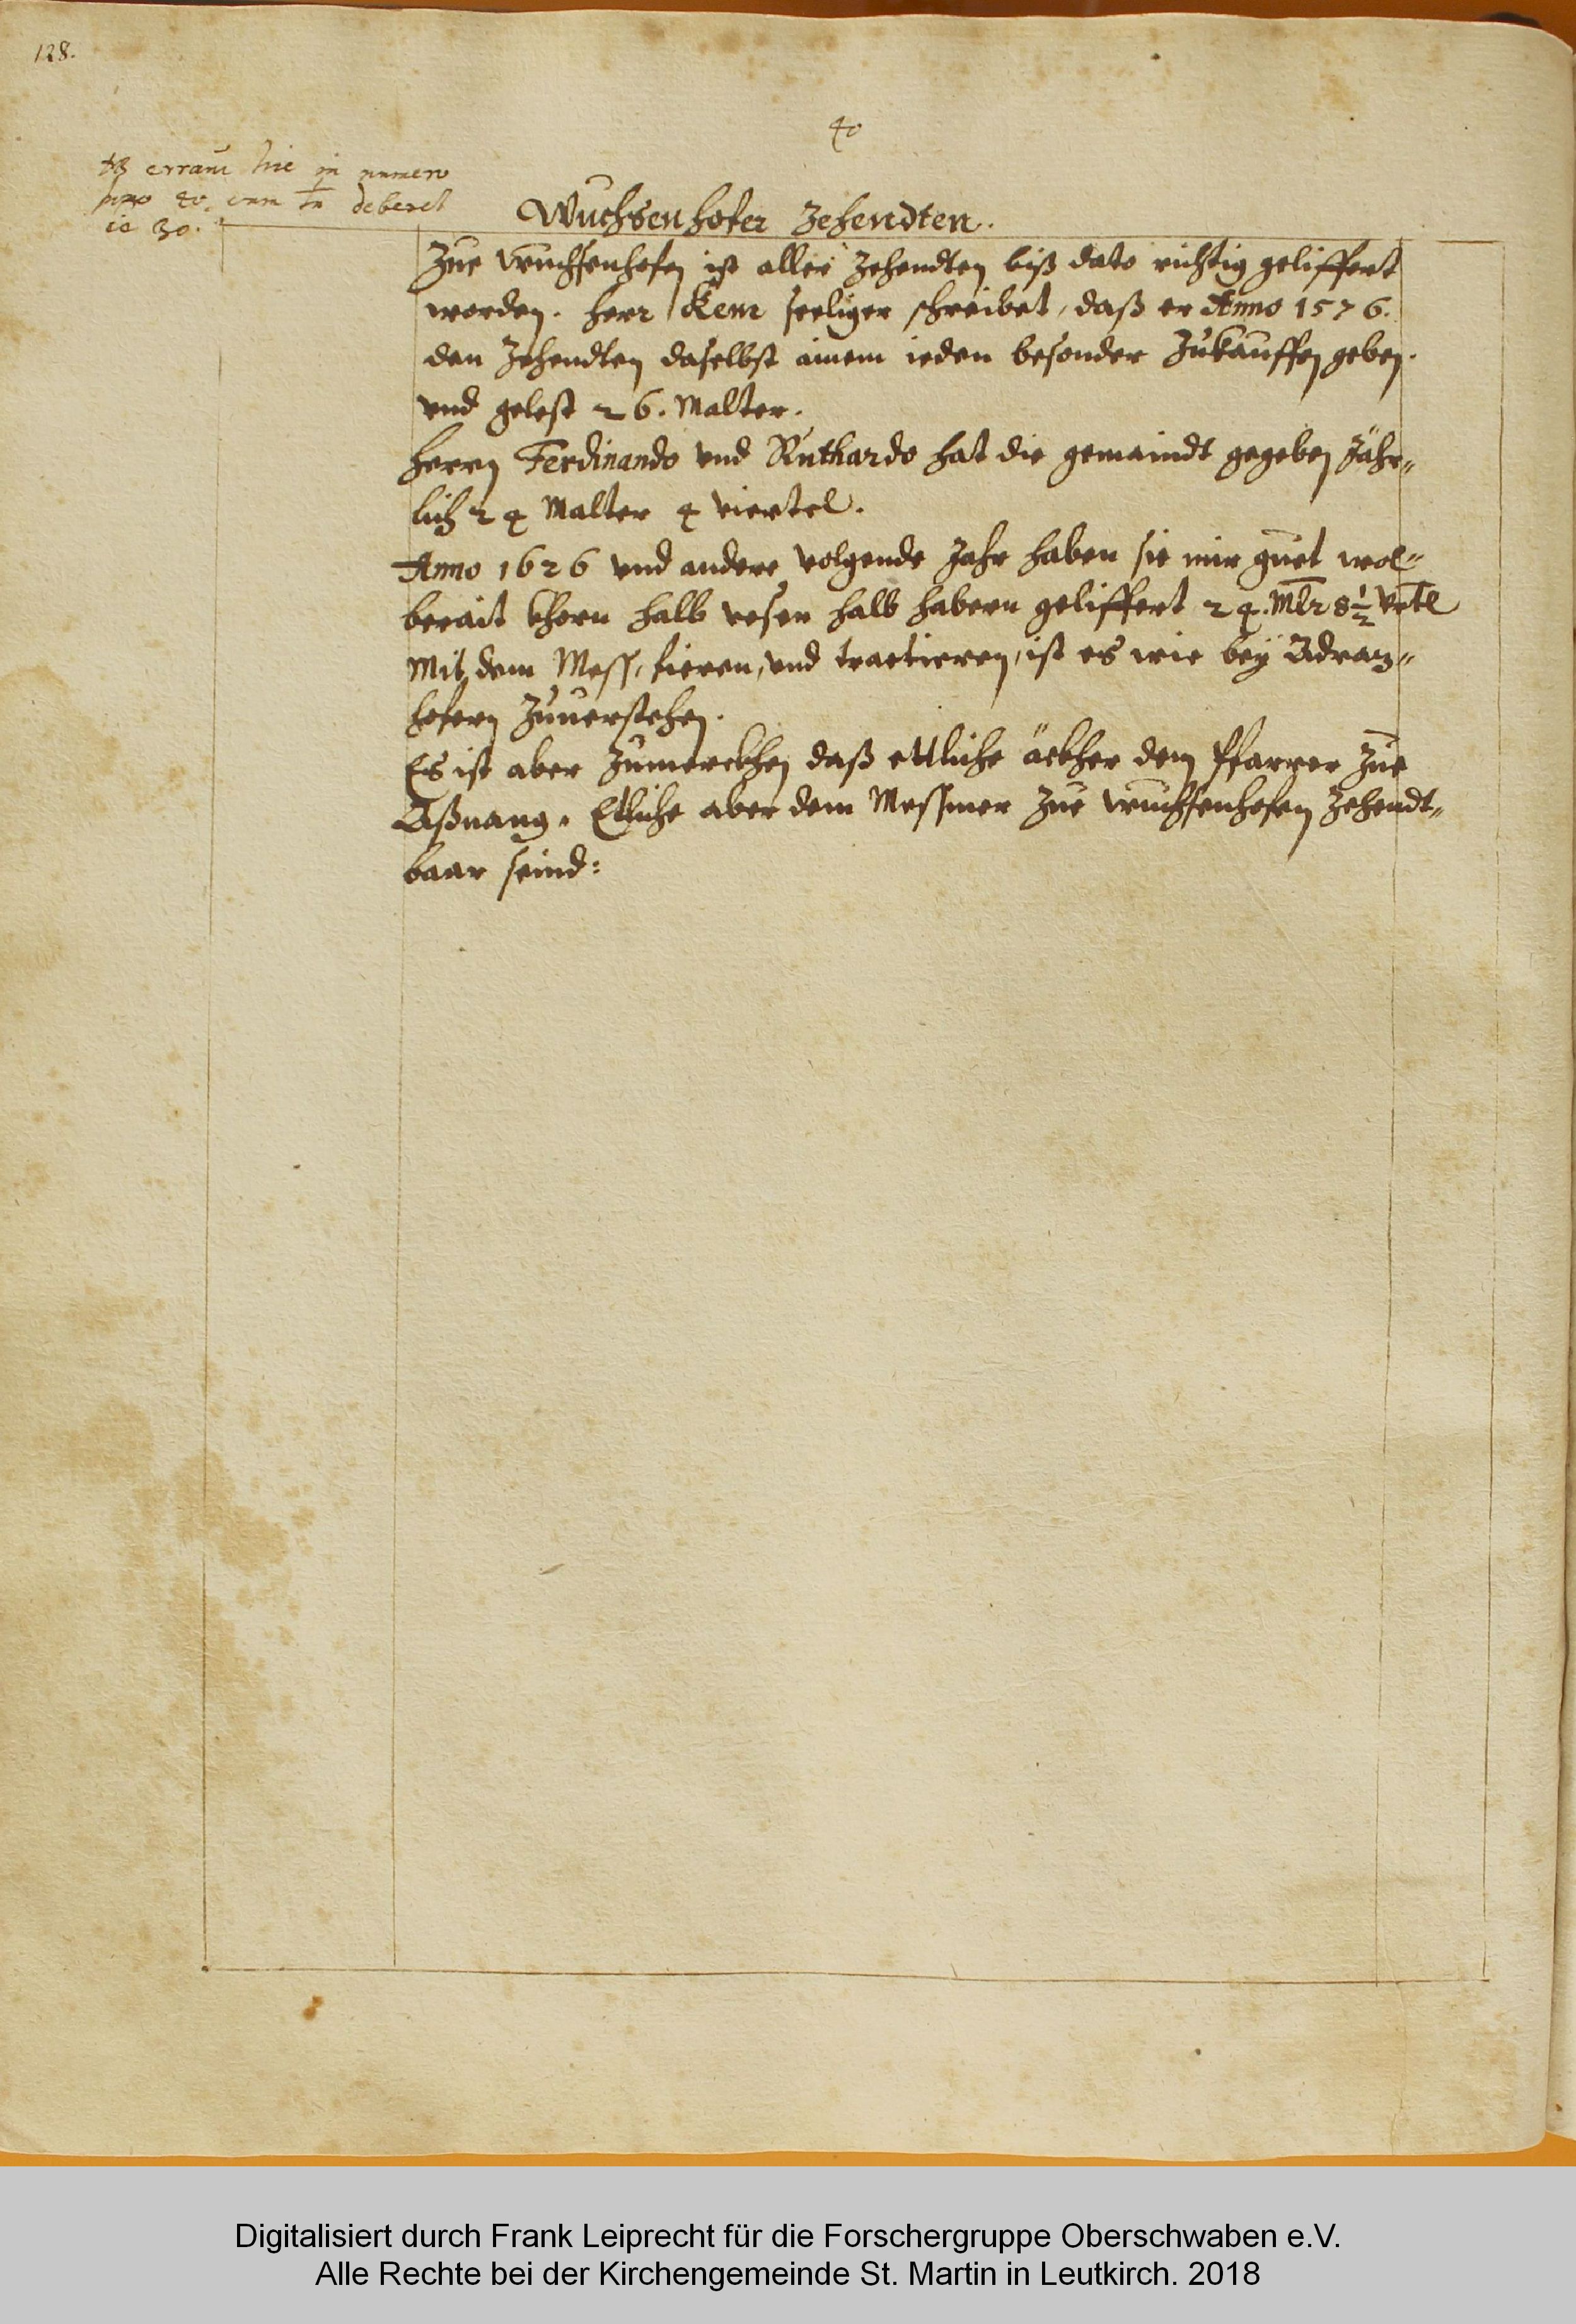 128.
40
NB erraui hie in numero
40. cum tn deberet
ie 30.
Wuchsenhofer Zehendten.
Zue Wuchsenhofen ist aller Zehendten biß dato richtig geliffert
worden. Herr Kem seeliger schreibet, daß er Anno 1576.
den Zehendten daselbst ainem ieden besonder Zukauffen geben.
vnd gelest 26. Malter.
Herrn Ferdinando vnd Ruthardo hat die gemaindt gegeben Jähr„
lich 24 Malter 4 viertel.
Anno 1626 vnd andere volgende Jahr haben sie mir guet wol„
berait khorn halb vesen halb habern geliffert 24. Mlr 8½ Vrtl
Mit dem Mess, fieren, vnd tractieren, ist es wie bey Adraz„
hofern Zuuerstehen.
Es ist aber Zumerckhen daß ettliche äckher dem Pfarrer Zue
Aßnang. Etliche aber dem Messmer Zue Wuchsenhofen Zehendt„
baar seind:
Digitalisiert durch Frank Leiprecht für die Forschergruppe Oberschwaben e.V.
Alle Rechte bei der Kirchengemeinde St. Martin in Leutkirch. 2018